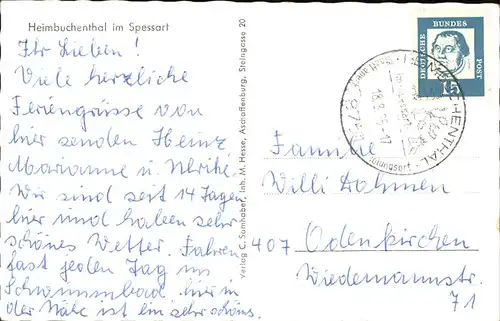 Heimbuchenthal im Spessart
Ihr Lieben!
Viele herzliche
Feriengrüsse von
hier senden Heinz,
Marianne und Ulrike.
Wir sind seit 14 Tagen
hier und haben sehr
schönes Wetter. Fahren
fast jeden Tag ins
Schwimmbad hier in
der Nähe ist ein sehr schönes.
Verlag C. Samhaber, Inh. M. Hesse, Aschaffenburg, Steingasse 20
DEUTSCHE BUNDESPOST
15
18.8. -17
Familie
Willi Dahmen
407 Odenkirchen
Wiedemannstr.
71